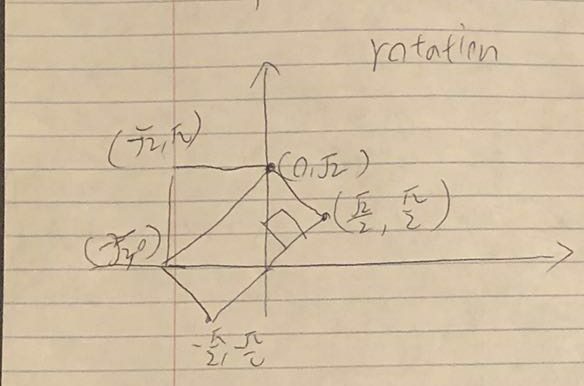 rotation
(-√2, √2)
(0, √2)
(√2/2, √2/2)
(-√2, 0)
-√2/2, -√2/2